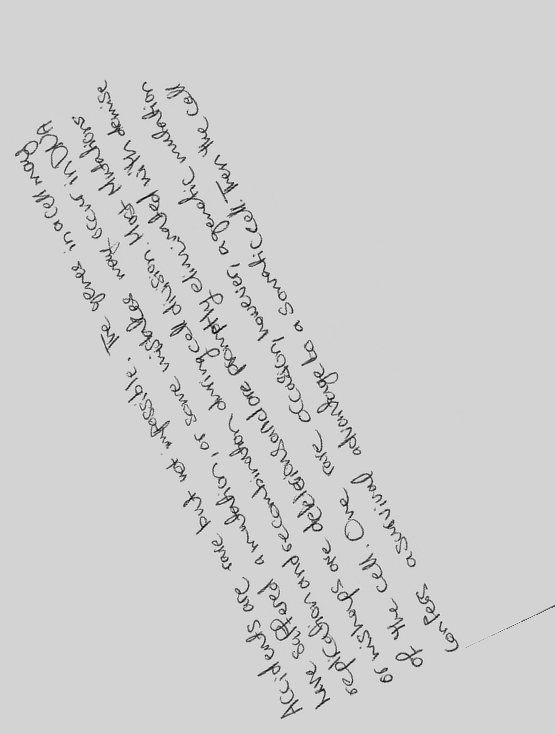 Accidents are rare but not impossible. The genes in a cell may
have suffered a mutation, or some mistakes may occur in DNA
replication and recombination during cell division. Most Mutations
or mishaps are deletions and are promptly eliminated with demise
of the cell. One rare occasion, however, a genetic mutation
confess a survival advantage to a somatic cell. Then the cell